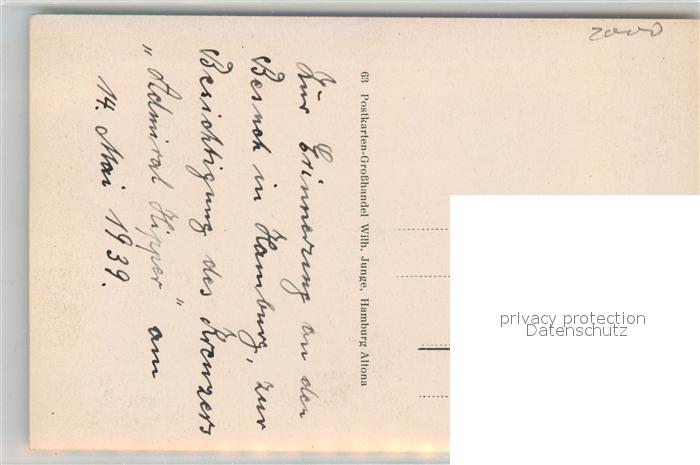 Zur Erinnerung an den
Besuch in Hamburg, zur
Besichtigung des Kreuzers
„Admiral Hipper" am
14. Mai 1939.
63 Postkarten-Großhandel Wilh. Junge, Hamburg Altona
2000
privacy protection
Datenschutz